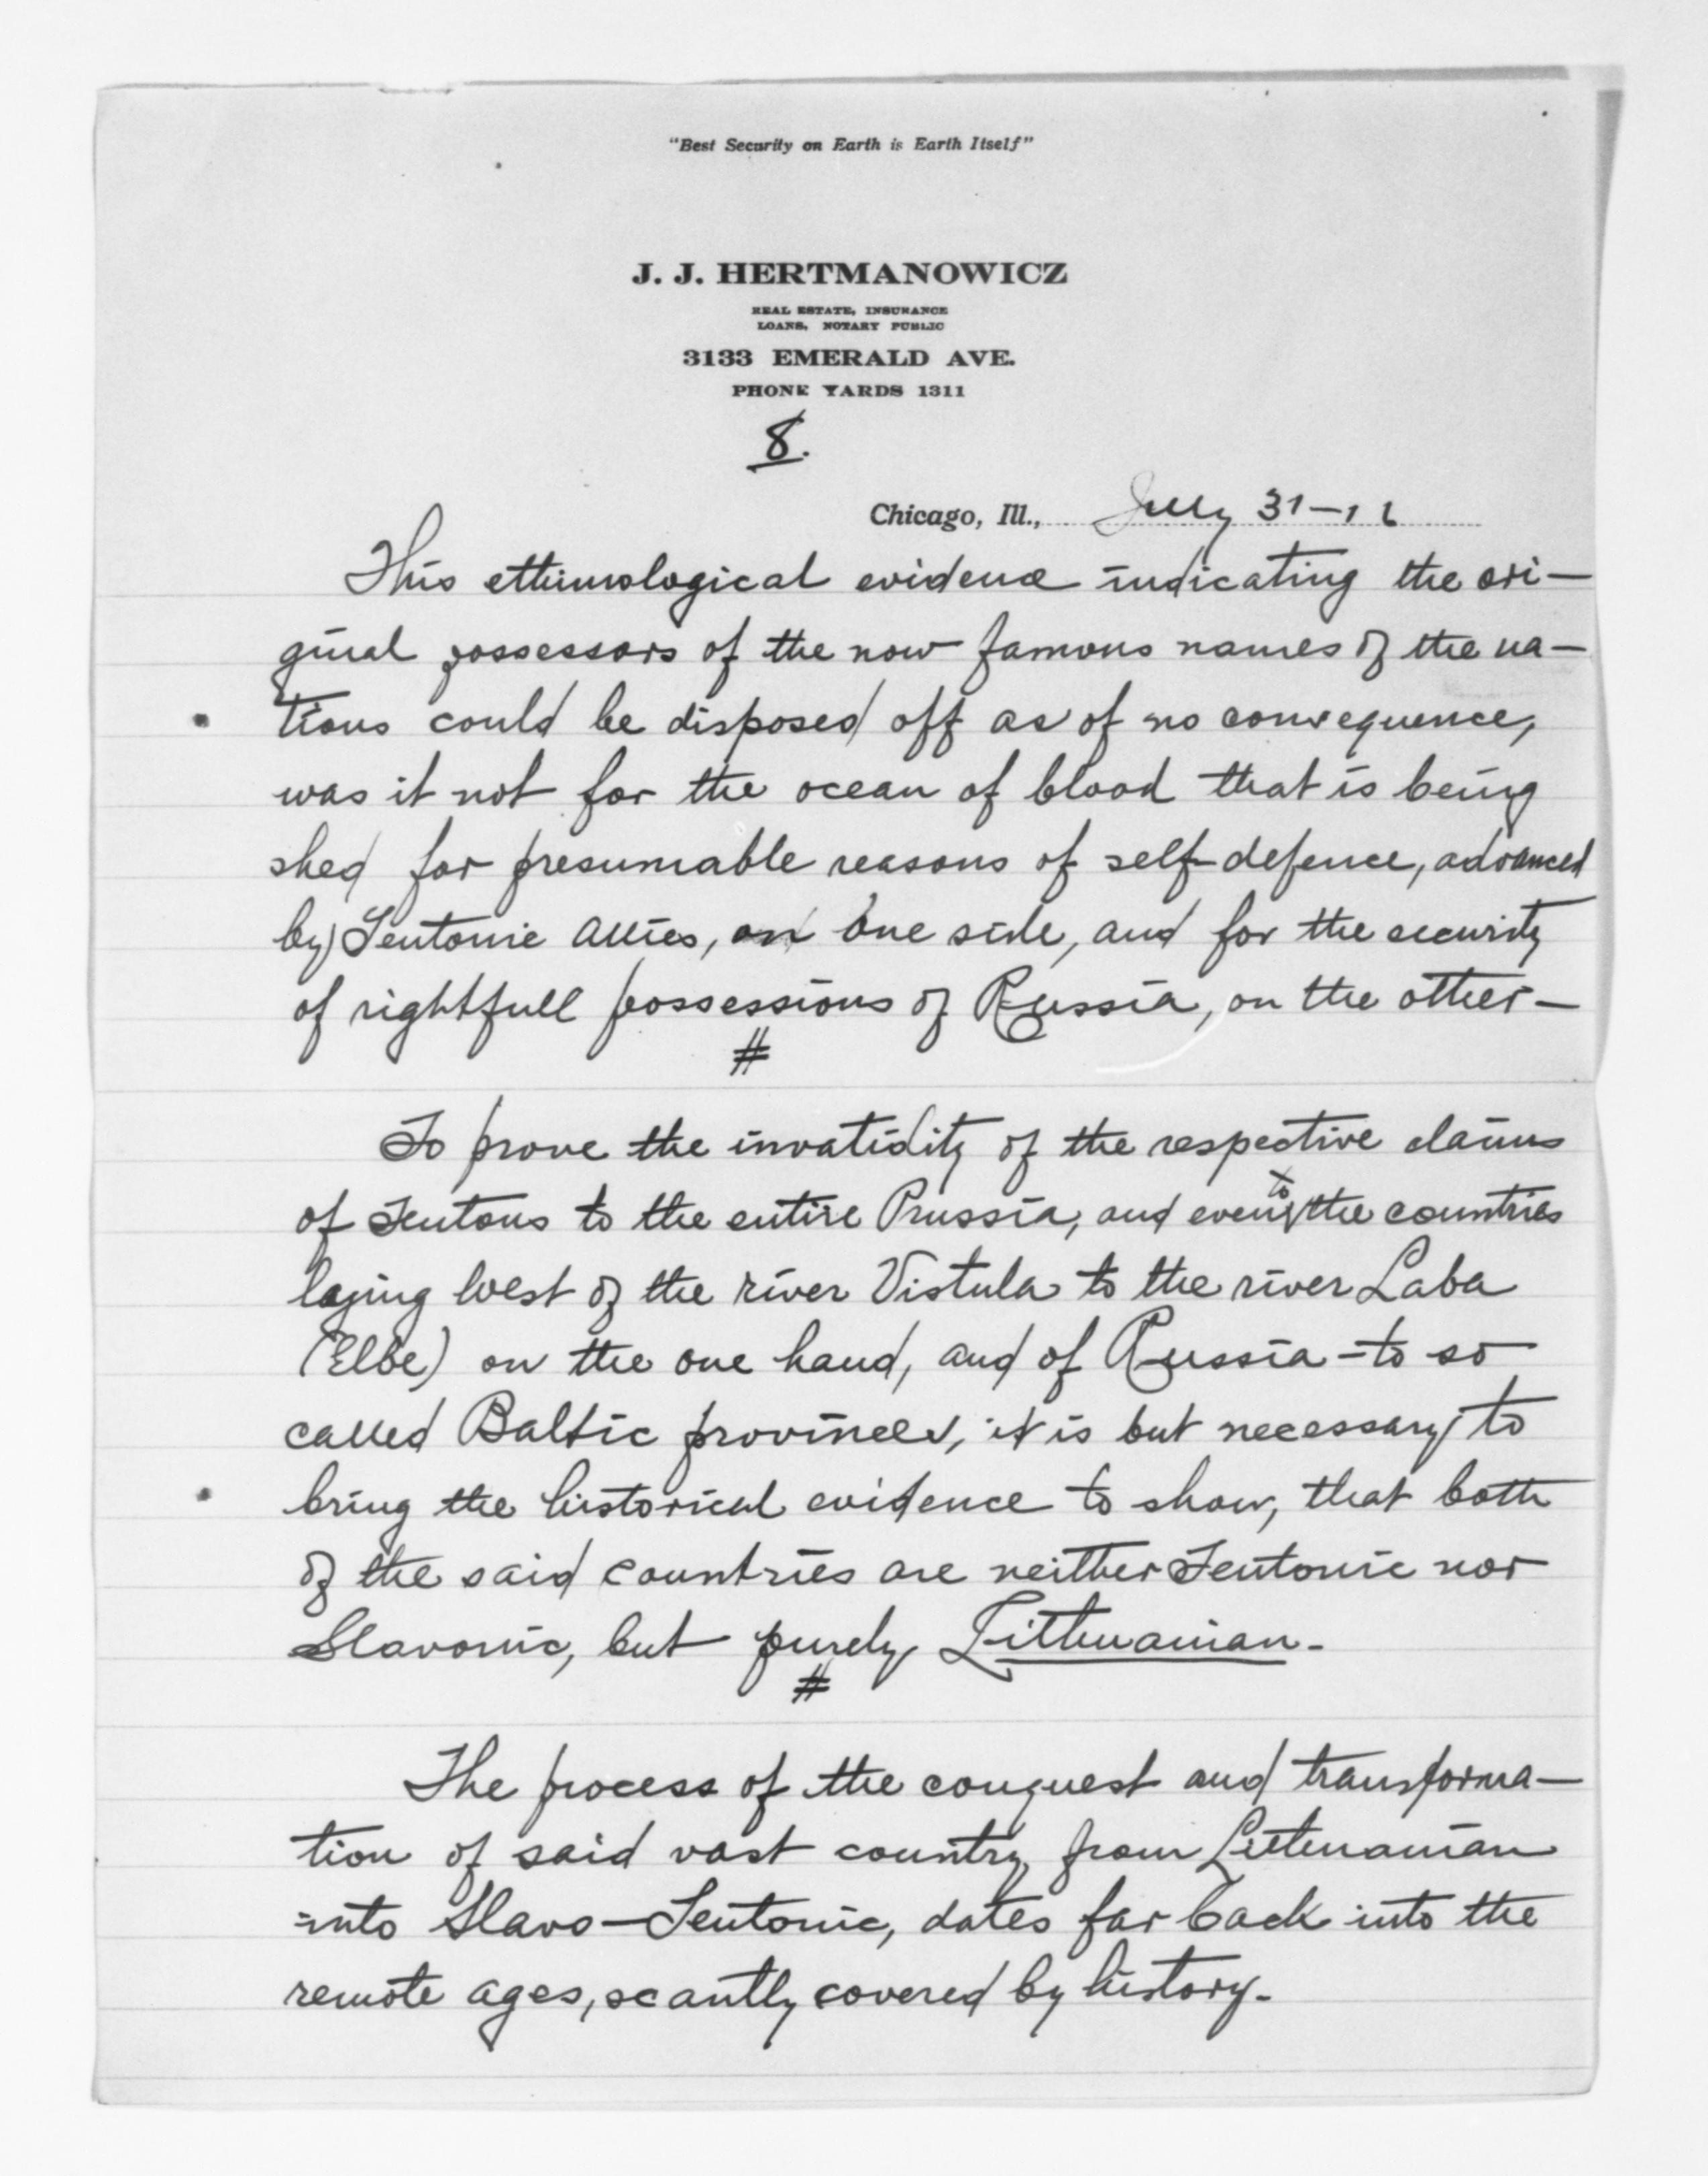 "Best Security on Earth is Earth Itself"
J. J. HERTMANOWICZ
REAL ESTATE, INSURANCE
LOANS, NOTARY PUBLIC
3133 EMERALD AVE.
PHONE YARDS 1311
8.
Chicago, Ill., July 31-16
This ethimological evidence indicating the ori-
ginal possessors of the now famous names of the na-
tions could be disposed off as of no consequence,
was it not for the ocean of blood that is being
shed for presumable reasons of self-defence, advanced
by Teutonic Allies, on one side, and for the security
of rightfull possessions of Russia, on the other-
#
To prove the invatidity of the respective claims
of Teutons to the entire Prussia, and even to the countries
laying West of the river Vistula to the river Laba
(Elbe) on the one hand, and of Russia - to so
called Baltic provinces, it is but necessary to
bring the historical evidence to show, that both
of the said countries are neither Teutonic nor
Slavonic, but purely Lithuanian-
#
The process of the conquest and transforma-
tion of said vast country from Lithuanian
into Slavo-Teutonic, dates far back into the
remote ages, scantly covered by history-